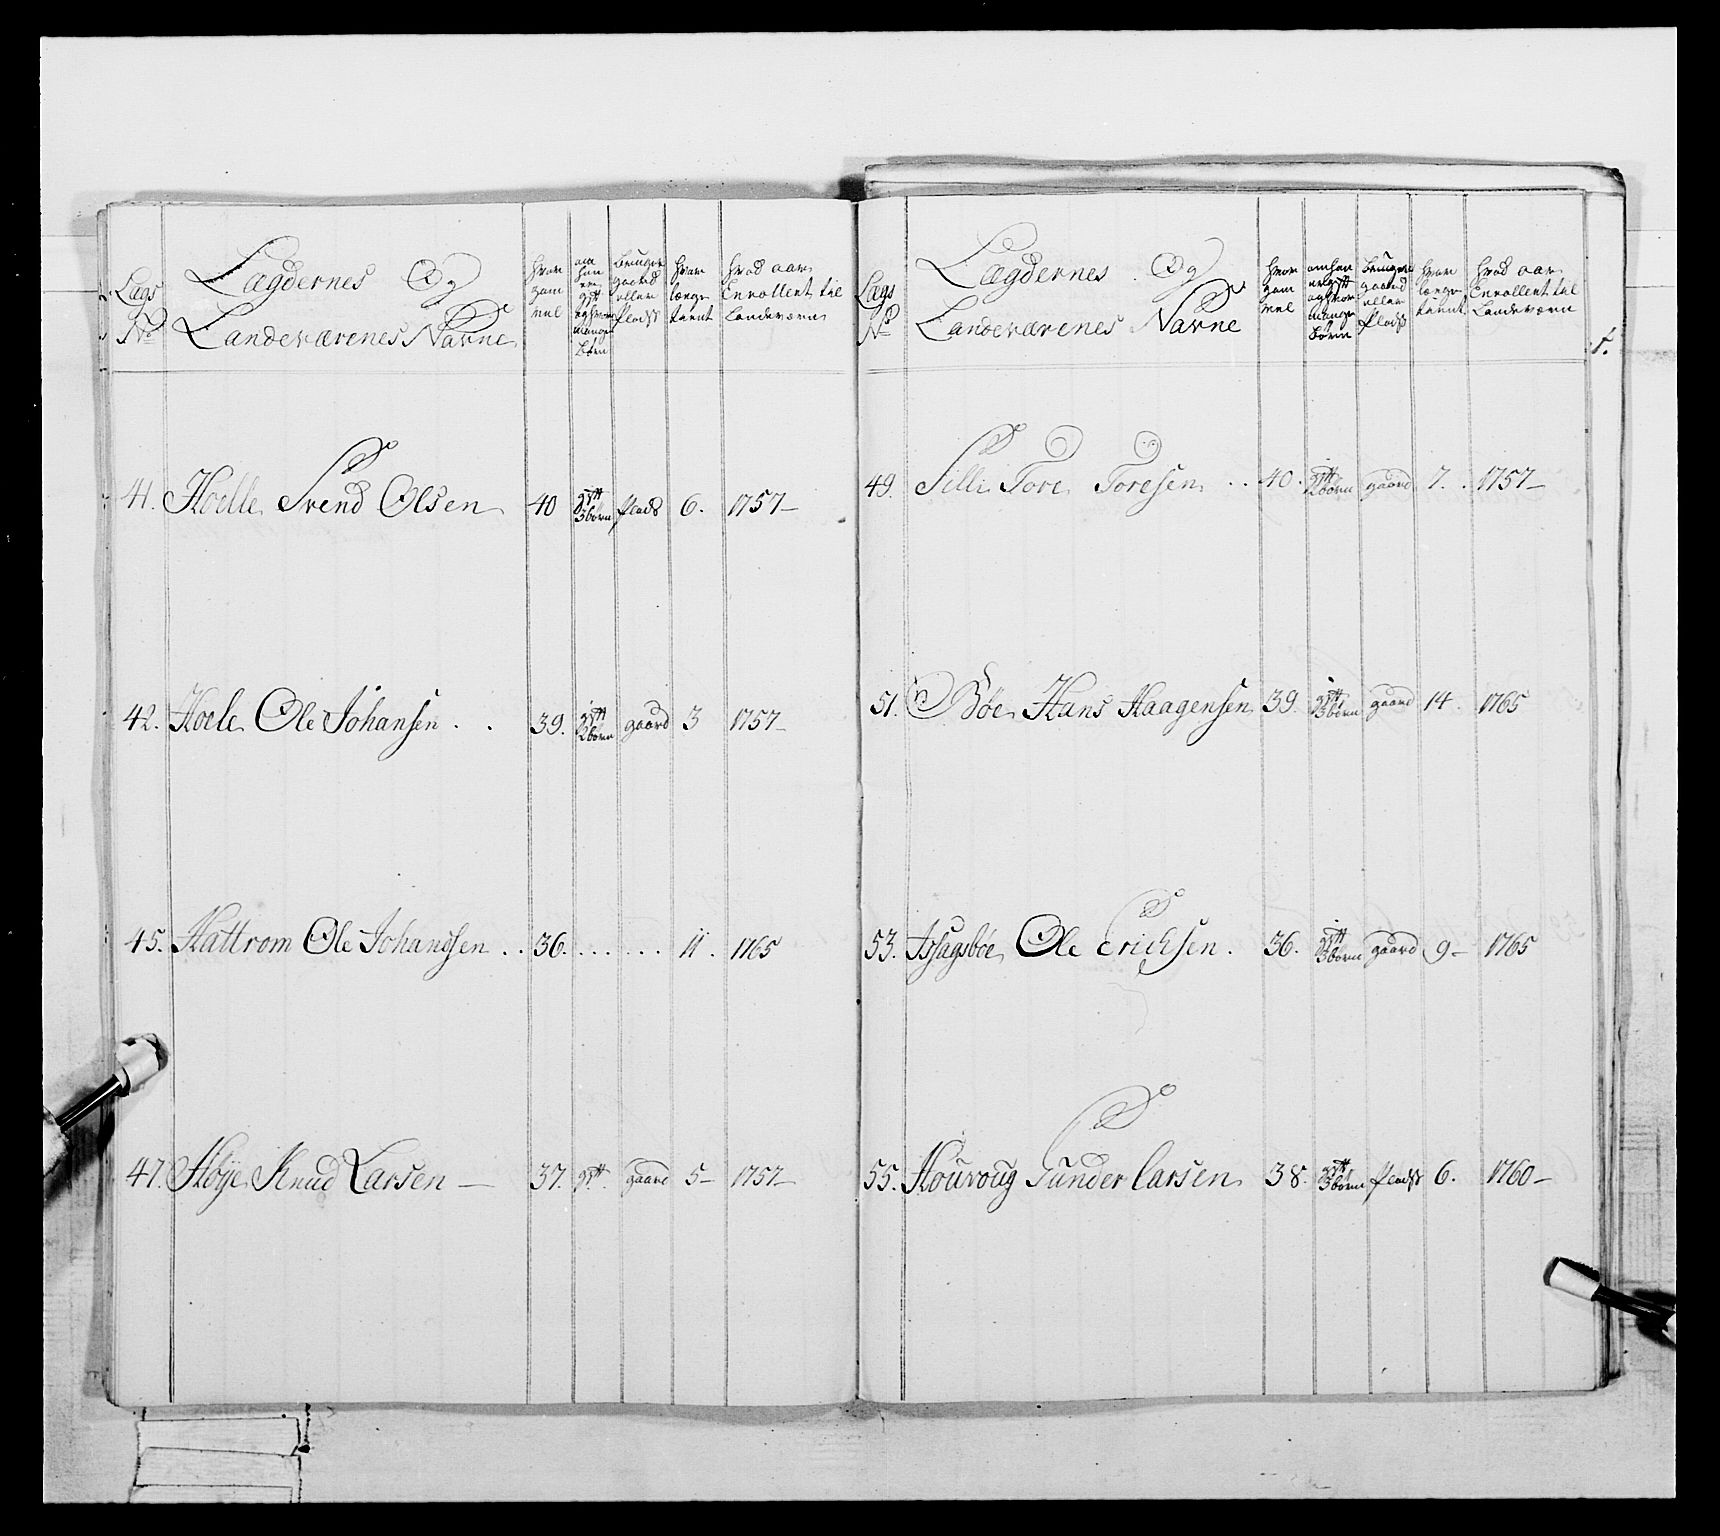 Lægs
No
Lægdernes Og
Landeværenes Navne
hvor
gam
mel
om
han
er
gift
og hvor
mange
børn
bruger
gaard
eller
Plads
hvor
længe
tient
hvad aar
Enrollert til
Landeværn
41. Hoelle Svend Olsen 40 gift 3 børn Plads 6. 1757-
42. Hoele Ole Johansen . . 39. gift 2 børn gaard 3 1757-
45. Hattrem Ole Johansen . . 36. . . . . . . . 11. 1765
47. Høye Knud Larsen - 37. gift gaard 5- 1757-
Lægs
No
Lægdernes Og
Landeværenes Navne
hvor
gam
mel
om han
er gift
og hvor
mange
børn
bruger
gaard
eller
Plads
hvor
længe
tient
hvad aar
Enrollert til
Landeværn
49. Silli Tore Toresen . . 40. gift 2 børn gaard 7. . 1757-
51. Bøe Hans Haagensen 39. gift 3 børn gaard 14. 1765
53. Ole Erichsen . 36. gift 3 børn gaard 9- 1765
55. Houvoug Gunder Larsen 38. gift 3 børn Plads 6. 1760-